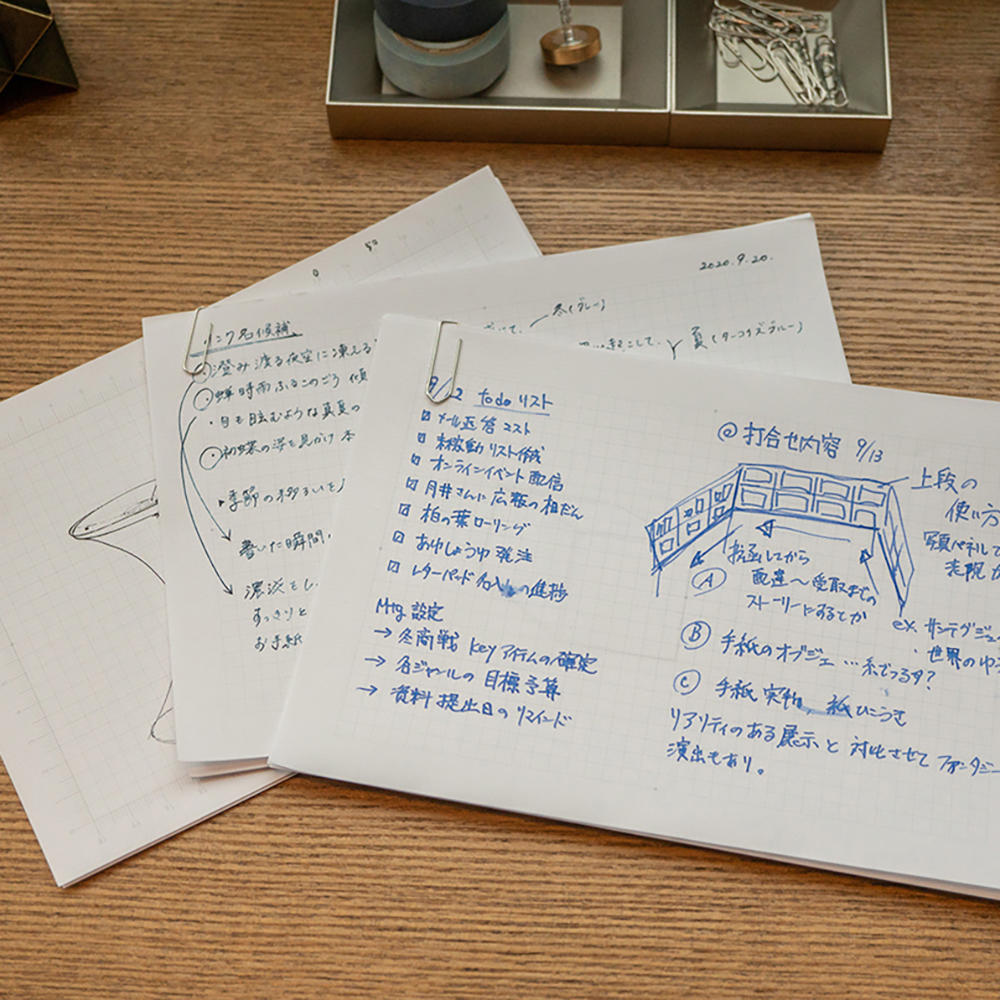 50
0
2020.9.20.
インク名候補
冬(ブルー)
夏(ターコイズブルー)
澄み渡る夜空に凍える
蝉時雨ふるこのごろ 傾
・目も眩むような真夏の
初蝶の姿を見かけ 本
季節の移ろいを
書いた瞬間、
濃淡をし
すっきりと
お手紙
9/12 todo リスト
☑ メール返答 コスト
☑ 未稼動リスト作成
☑ オンラインイベント配信
☑ 月井さんに広報の相だん
☑ 柏の葉ローリング
☑ あゆしょうゆ 発注
☑ レターパッド の進捗
Mtg 設定
→ 冬商戦 key アイテムの確定
→ 各ジャンルの目標予算
→ 資料提出日のリマインド
@打合せ内容 9/13
上段の
使い方
写真パネルで
Ⓐ 投函してから
配達〜受取までの
ストーリーにするとか
ex. サンテグジュ
・世界のゆ
Ⓑ 手紙のオブジェ…糸でつるす?
Ⓒ 手紙実物、紙ひこうき
リアリティのある展示と対比させてファンタジー
演出もあり。